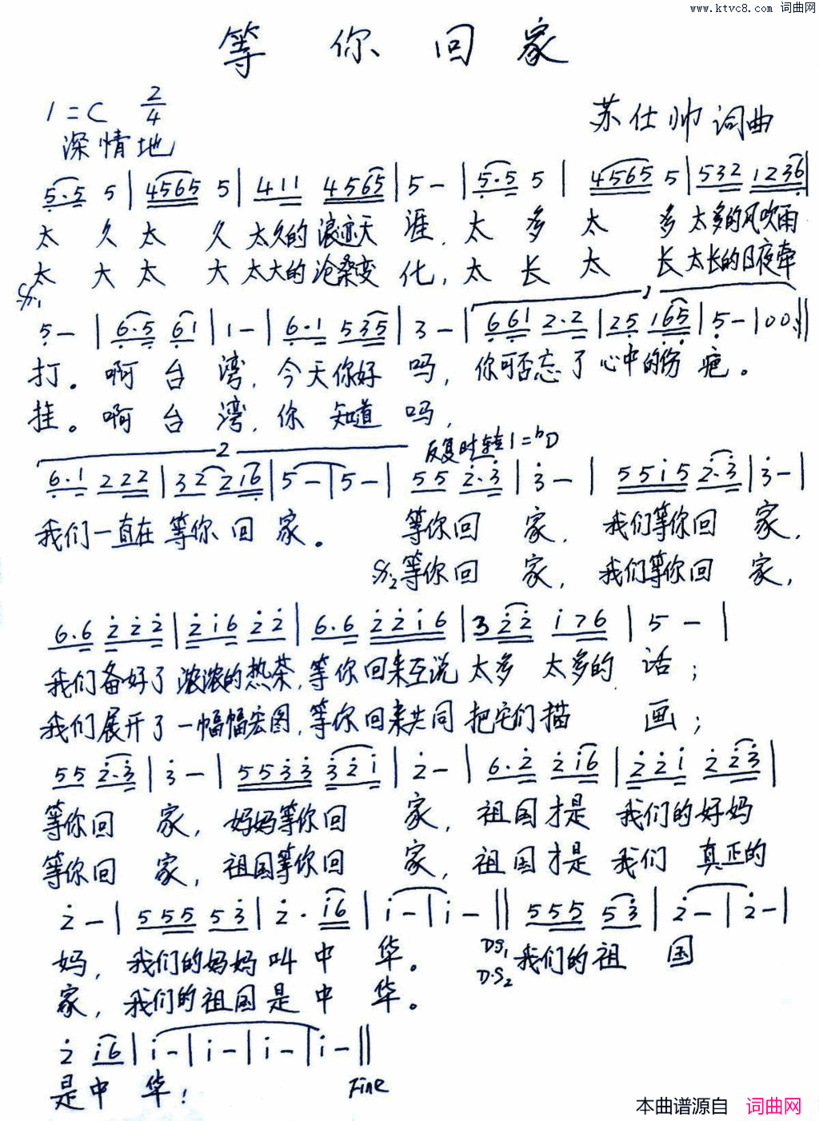 www.ktvc8.com 词曲网
等你回家
1=C 2/4
苏仕帅 词曲
深情地
5·5 5 | 4565 5 | 411 4565 | 5 - | 5·5 5 | 4565 5 | 532 1236 |
太 久 太 久 太久的浪迹天 涯, 太 多 太 多 太多的风吹雨
太 大 太 大 太大的沧桑变 化, 太 长 太 长 太长的日夜牵
5 - | 6·5 61 | 1 - | 6·1 535 | 3 - | 661 2·2 | 25 165 | 5 - | 00 :||
打。啊 台 湾, 今天你好 吗, 你可否忘了心中的伤 疤。
挂。啊 台 湾, 你 知道 吗,
2
反复时转1=bD
6·1 222 | 32 216 | 5 - | 5 - | 55 2·3 | 3 - | 5515 2·3 | 3 - |
我们一直在等你 回 家。 等你回 家, 我们等你回 家,
等你回 家, 我们等你回 家,
6·6 222 | 216 22 | 6·6 2216 | 322 176 | 5 - |
我们备好了浓浓的热茶,等你回来互说太多 太多的 话;
我们展开了一幅幅宏图,等你回来共同把它们描 画;
55 2·3 | 3 - | 5533 321 | 2 - | 6·2 216 | 221 223 |
等你回 家, 妈妈等你回 家, 祖国才是 我们的好妈
等你回 家, 祖国等你回 家, 祖国才是 我们 真正的
2 - | 555 53 | 2· 16 | 1 - | 1 - || 555 53 | 2 - | 2 - |
妈, 我们的妈妈叫 中 华。 D.S1 我们的祖 国
家, 我们的祖国是 中 华。 D.S2
2 16 | 1 - | 1 - | 1 - | 1 - ||
是中 华!
Fine
本曲谱源自 词曲网